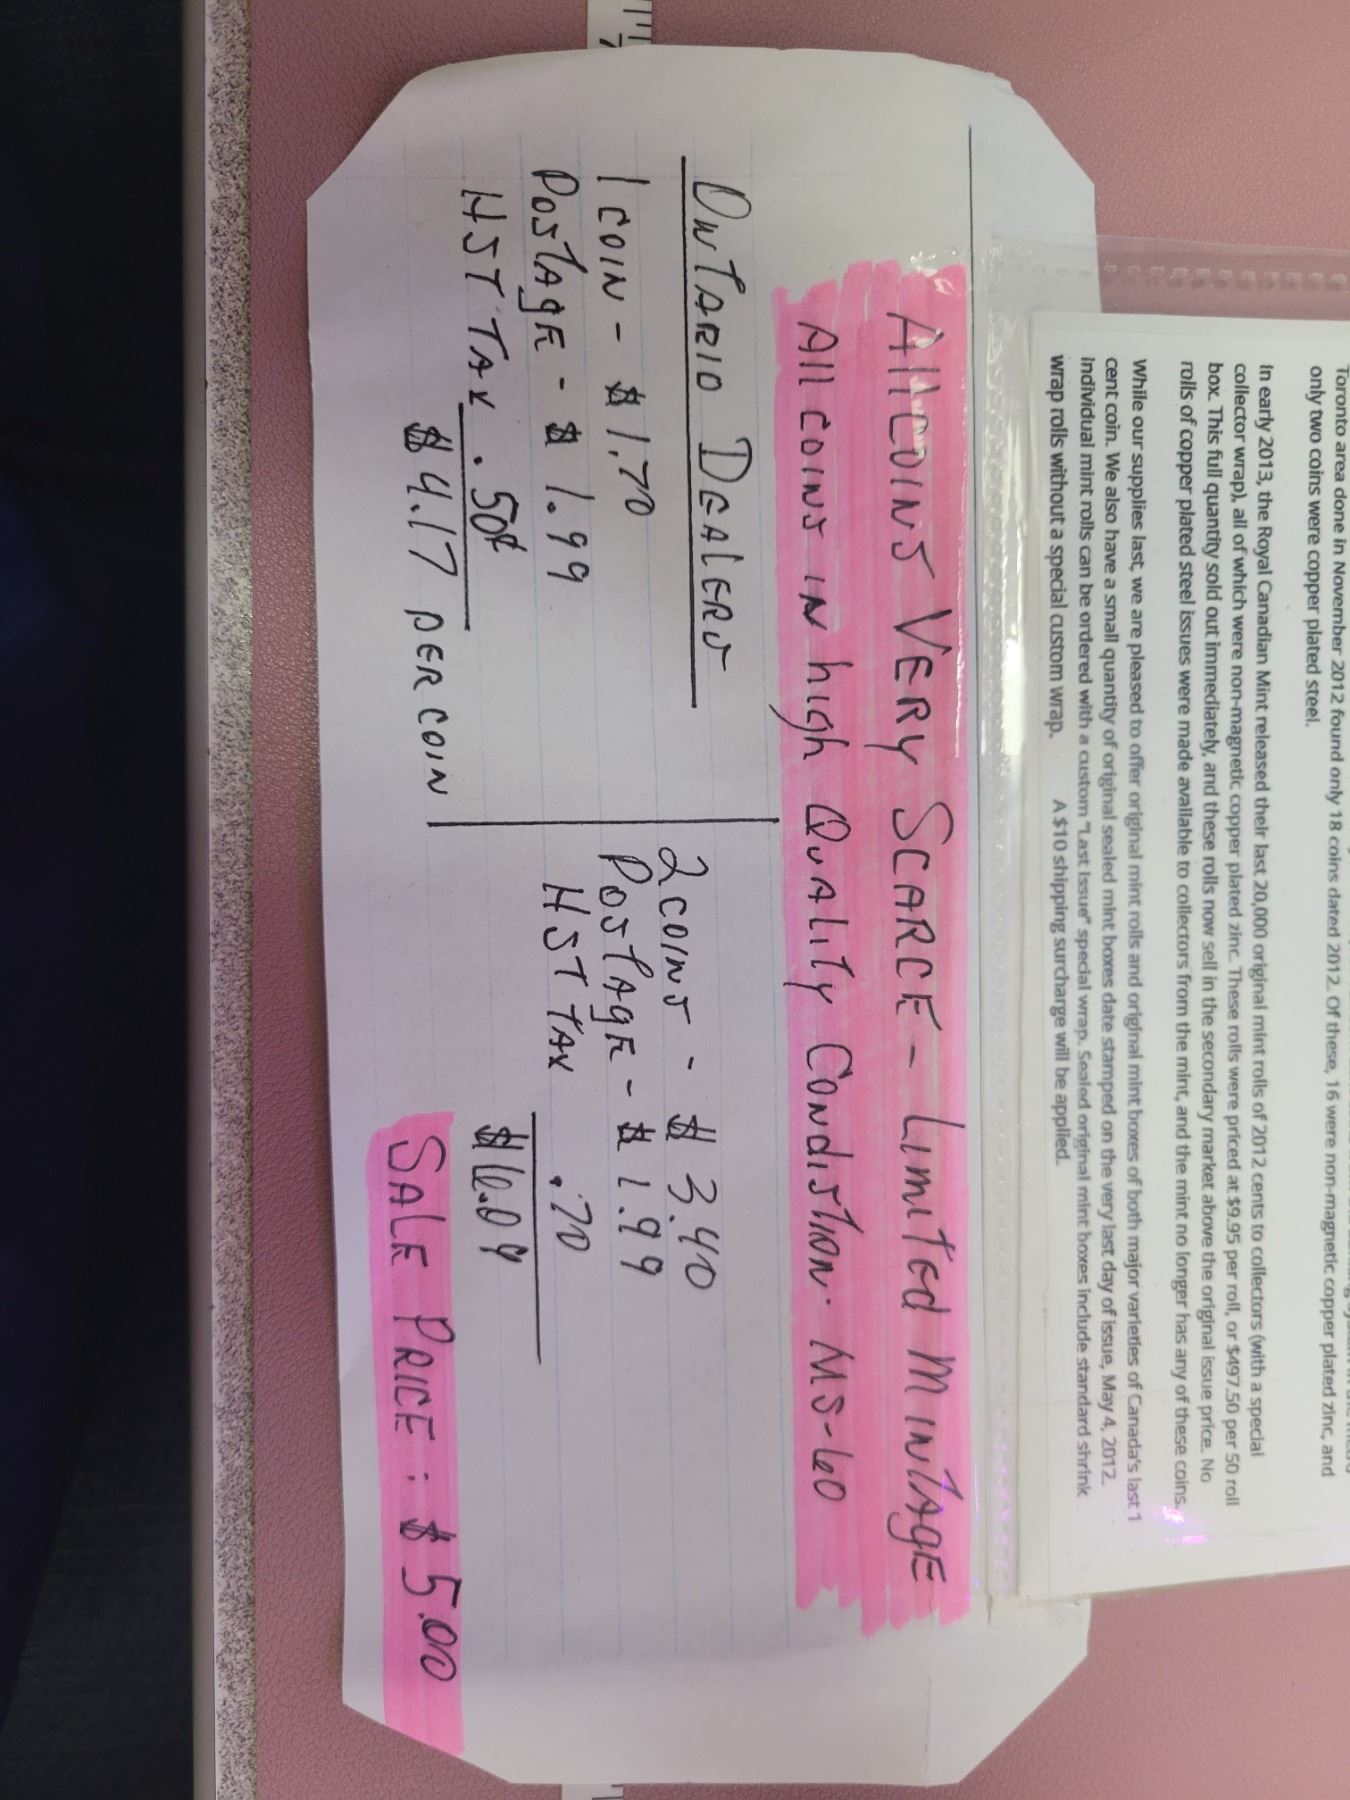 Toronto area done in November 2012 found only 18 coins dated 2012. Of these, 16 were non-magnetic copper plated zinc, and
only two coins were copper plated steel.
In early 2013, the Royal Canadian Mint released their last 20,000 original mint rolls of 2012 cents to collectors (with a special
collector wrap), all of which were non-magnetic copper plated zinc. These rolls were priced at $9.95 per roll, or $497.50 per 50 roll
box. This full quantity sold out immediately, and these rolls now sell in the secondary market above the original issue price. No
rolls of copper plated steel issues were made available to collectors from the mint, and the mint no longer has any of these coins.
While our supplies last, we are pleased to offer original mint rolls and original mint boxes of both major varieties of Canada's last 1
cent coin. We also have a small quantity of original sealed mint boxes date stamped on the very last day of issue, May 4, 2012.
Individual mint rolls can be ordered with a custom "Last Issue" special wrap. Sealed original mint boxes include standard shrink
wrap rolls without a special custom wrap. A $10 shipping surcharge will be applied.
All COINS VERY SCARCE - LimiTed MINTAGE
All COINS IN high QuALiTy CONdiSTION. MS-60
ONTARIO DEALERS
1 COIN - $ 1.70
POSTAGE - $ 1.99
HST TAX .50¢
$4.17 PER COIN
2 COINS - $ 3.40
POSTAGE - $ 1.99
HST TAX .70
$6.09
SALE PRICE: $ 5.00